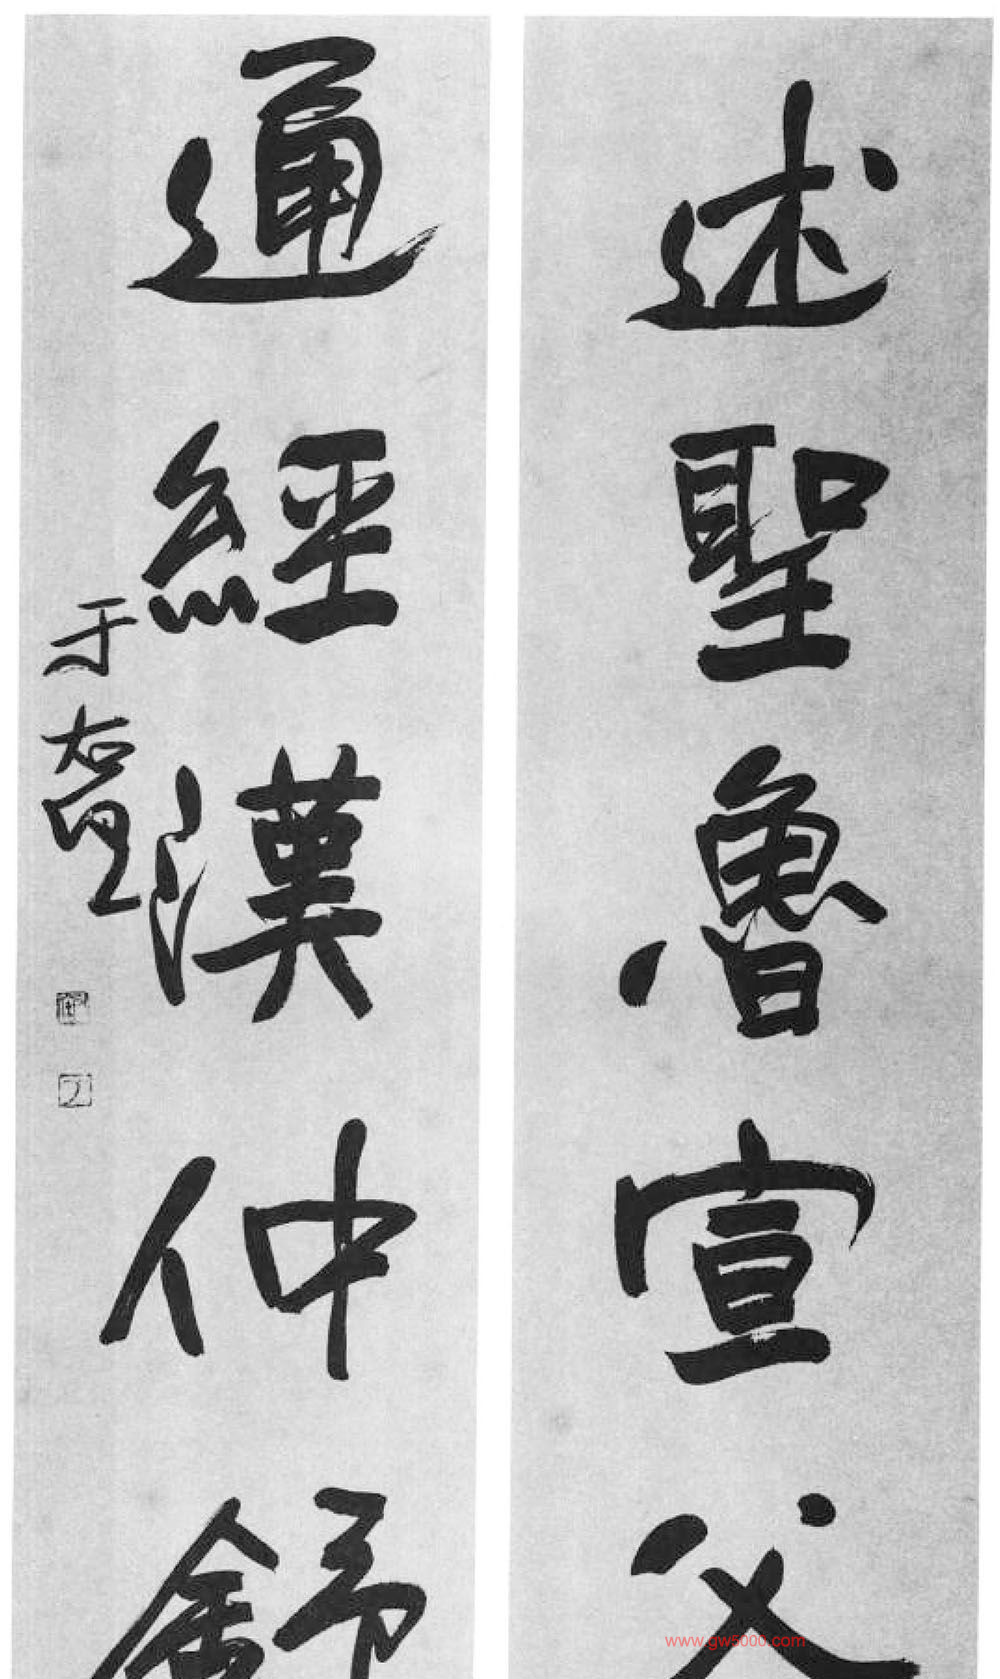 述聖魯宣父
通經漢仲舒
于右任
www.gw5000.com